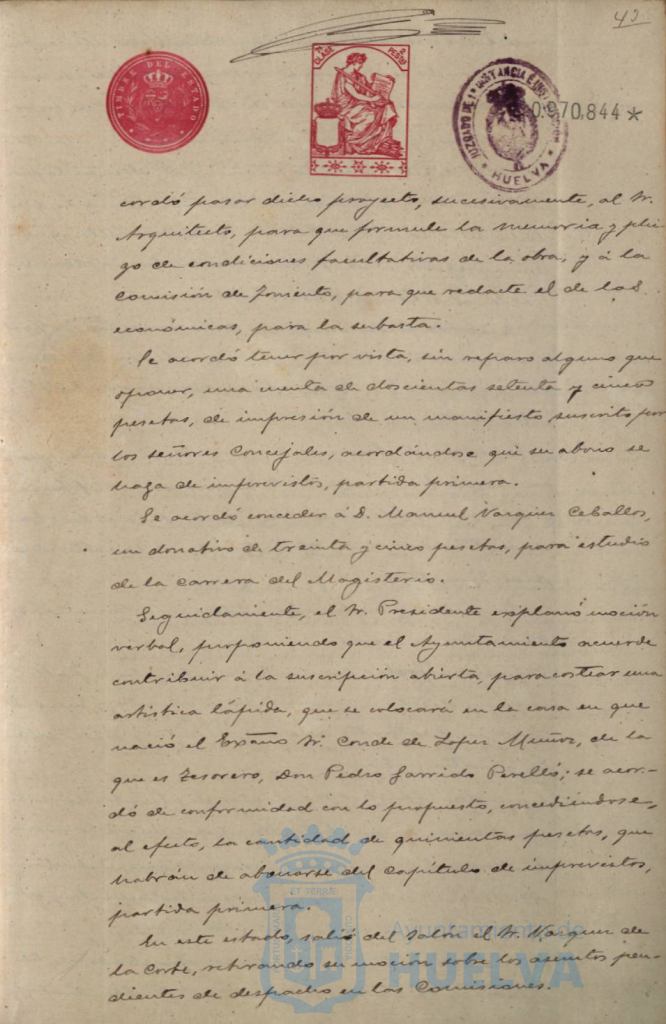 42
TIMBRE DEL ESTADO
CLASE
PESETAS
JUZGADO DE 1ª INSTANCIA E INSTRUCCION
HUELVA
0.970,844 *
cordó pasar dicho proyecto, sucesivamente, al Sr.
Arquitecto, para que formule la memoria y plie-
go de condiciones facultativas de la obra, y á la
Comisión de Fomento, para que redacte el de las
económicas, para la subasta.
Se acordó tener por vista, sin reparo alguno que
oponer, una cuenta de doscientas setenta y cinco
pesetas, de impresión de un manifiesto suscrito por
los señores Concejales, acordándose que su abono se
haga de imprevistos, partida primera.
Se acordó conceder á D. Manuel Vazquez Ceballos,
un donativo de treinta y cinco pesetas, para estudio
de la carrera del Magisterio.
Seguidamente, el Sr. Presidente explanó moción
verbal, proponiendo que el Ayuntamiento acuerde
contribuir á la suscripción abierta, para costear una
artistica lápida, que se colocará en la casa en que
nació el Excmo Sr. Conde de Lopez Muñoz, de la
que es Tesorero, Don Pedro Garrido Perelló; se acor-
dó de conformidad con lo propuesto, concediéndose,
al efecto, la cantidad de quinientas pesetas, que
habrán de abonarse del Capítulo de imprevistos,
partida primera.
En este estado, salió del Salón el Sr. Vazquez de
la Corte, retirando su moción sobre los asuntos pen-
dientes de despacho en las Comisiones.
Ayuntamiento de
HUELVA